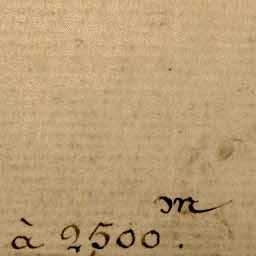 à 2500.m